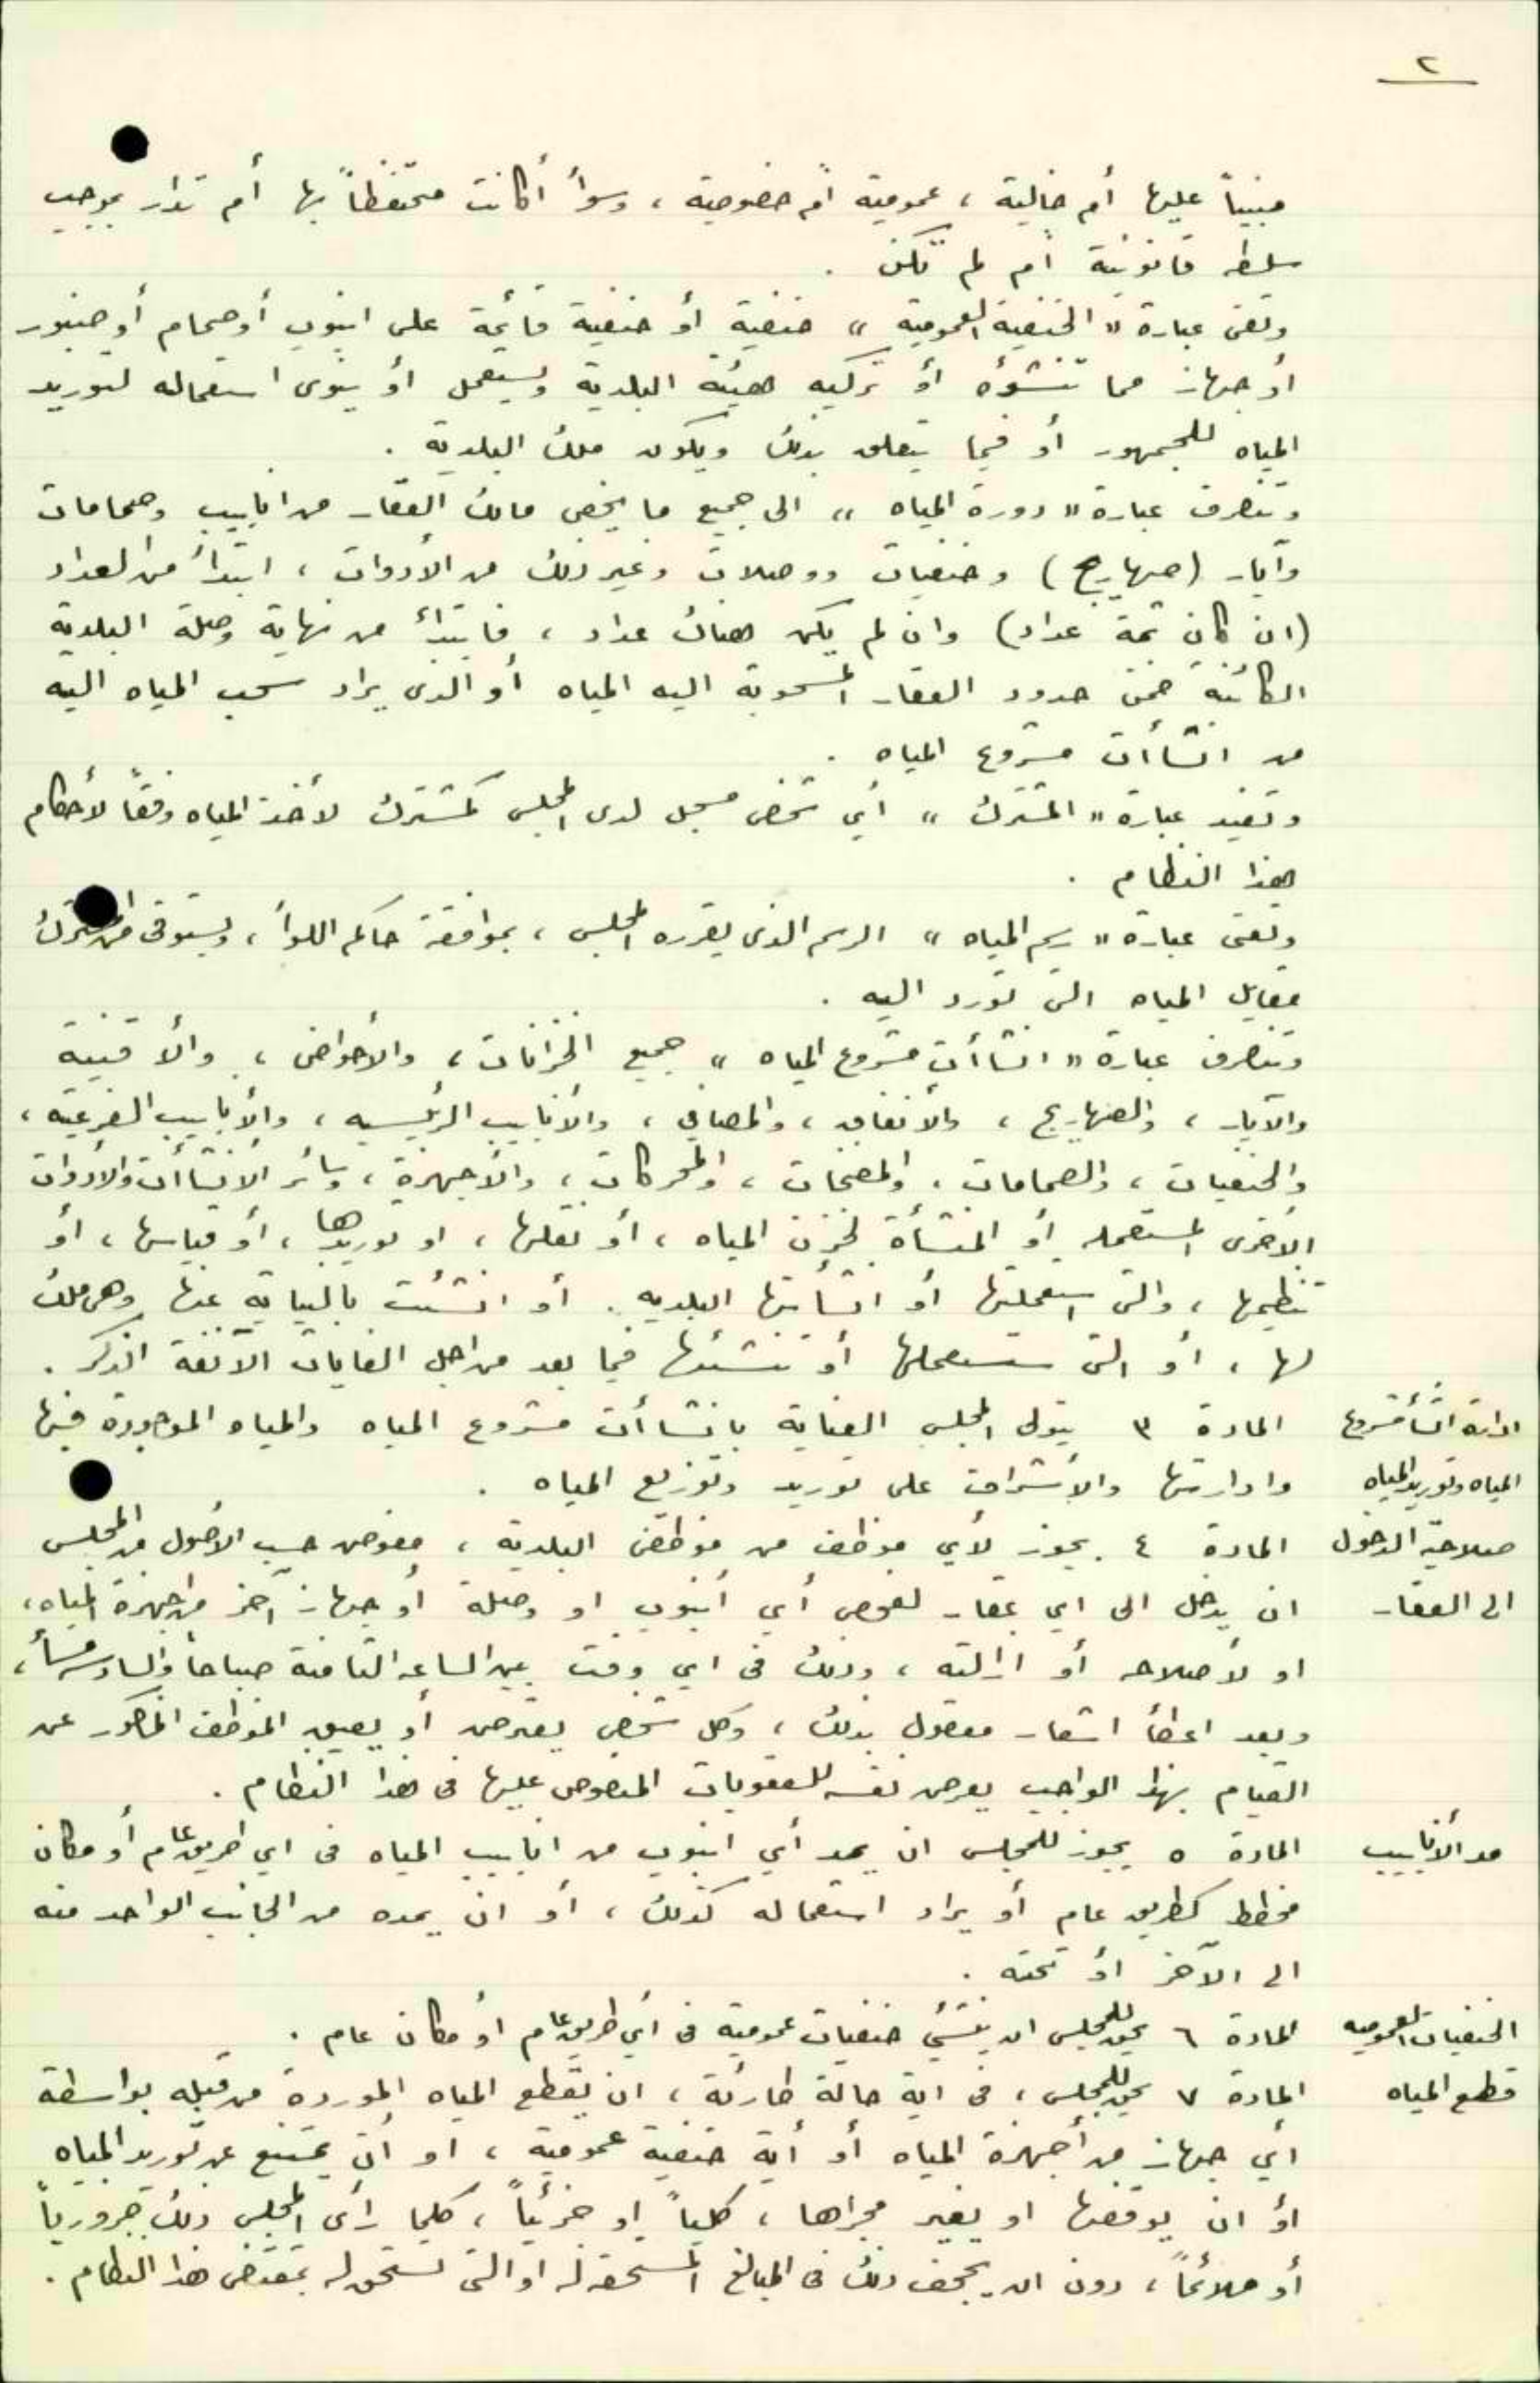 ٢
مبنياً عليها أم خالية ، عمومية أم خصوصية ، وسوأ أكانت محتفظاً بها أم تدار بموجب
سلطه قانونية أم لم تكن .
وتعنى عبارة " الحنفية العمومية " حنفية أو حنفية قائمة على انبوب أو صمام أو صنبور
أو جهاز مما تنشؤه أو تركبه هيئة البلدية ويستعمل أو ينوى استعماله لتوريد
المياه للجمهور أو فيما يتعلق بذلك ويكون ملك البلدية .
وتنصرف عبارة " دورة المياه " الى جميع ما يخص مالك العقار من انابيب وصمامات
وآبار (صهاريج) وحنفيات ووصلات وغير ذلك من الأدوات ، ابتدأ من العداد
(ان كان ثمة عداد) وان لم يكن هناك عداد ، فابتدائ من نهاية وصلة البلدية
الكائنة ضمن حدود العقار المسحوبة اليه المياه أو الذى يراد سحب المياه اليه
من انشاأت مشروع المياه .
وتفيد عبارة " المشترك " أي شخص مسجل لدى المجلس كمشترك لأخذ المياه وفقاً لأحكام
هذا النظام .
وتعنى عبارة " رسم المياه " الرسم الذى يقرره المجلس ، بموافقة حاكم اللوأ ، ويستوفى من المشترك
مقابل المياه التى تورد اليه .
وتنصرف عبارة " انشاأت مشروع المياه " جميع الخزانات ، والأحواض ، والأقنية
والآبار ، والصهاريج ، والأنفاق ، والمصافي ، والأنابيب الرئيسيه ، والأنابيب الفرعية ،
والحنفيات ، والصمامات ، والمضخات ، والمحركات ، والأجهزة ، وسائر الانشاأت والأدوات
الأخرى المستعمله أو المنشأة لخزن المياه ، أو نقلها ، او توريدها ، أو قياسها ، أو
تنظيمها ، والتى استعملتها أو انشأتها البلديه . أو انشئت بالنيابة عنها وهى ملك
لها ، أو التى ستستعملها أو تنشئها فيما بعد من اجل الغايات الآنفة الذكر .
ادارة انشأ مشروع المادة ٣ يتولى المجلس العناية بانشاأت مشروع المياه والمياه الموجودة فيها
المياه وتوريد المياه وادارتها والأشراف على توريد وتوزيع المياه .
صلاحية الدخول المادة ٤ يجوز لأي موظف من موظفى البلدية ، مفوض حسب الأصول من المجلس
الى العقار ان يدخل الى اي عقار لفحص أي أنبوب او وصلة أو جهاز آخر من اجهزة المياه ،
او لأصلاحه أو ازالته ، وذلك فى اي وقت بين الساعه الثامنة صباحاً والسادسه مسأ ،
وبعد اعطأ اشعار معقول بذلك ، وكل شخص يعترض أو يعيق الموظف المذكور عن
القيام بهذا الواجب يعرض نفسه للعقوبات المنصوص عليها فى هذا النظام .
مد الأنابيب المادة ٥ يجوز للمجلس ان يمد أي انبوب من انابيب المياه فى اي طريق عام أو مكان
مخطط كطريق عام أو يراد استعماله كذلك ، أو ان يمده من الجانب الواحد منه
الى الآخر أو تحته .
الحنفيات العموميه المادة ٦ يحق للمجلس ان ينشئ حنفيات عمومية فى أي طريق عام أو مكان عام .
قطع المياه المادة ٧ يحق للمجلس ، فى اية حالة طارئة ، ان يقطع المياه الموردة من قبله بواسطة
أي جهاز من أجهزة المياه أو أية حنفية عمومية ، او أن يمتنع عن توريد المياه
أو ان يوقفها او يغير مجراها ، كلياً او جزئياً ، كلما رأى المجلس ذلك ضرورياً
أو ملائماً ، دون ان يجحف ذلك فى المبالغ المستحقه له او التى تستحق له بمقتضى هذا النظام .